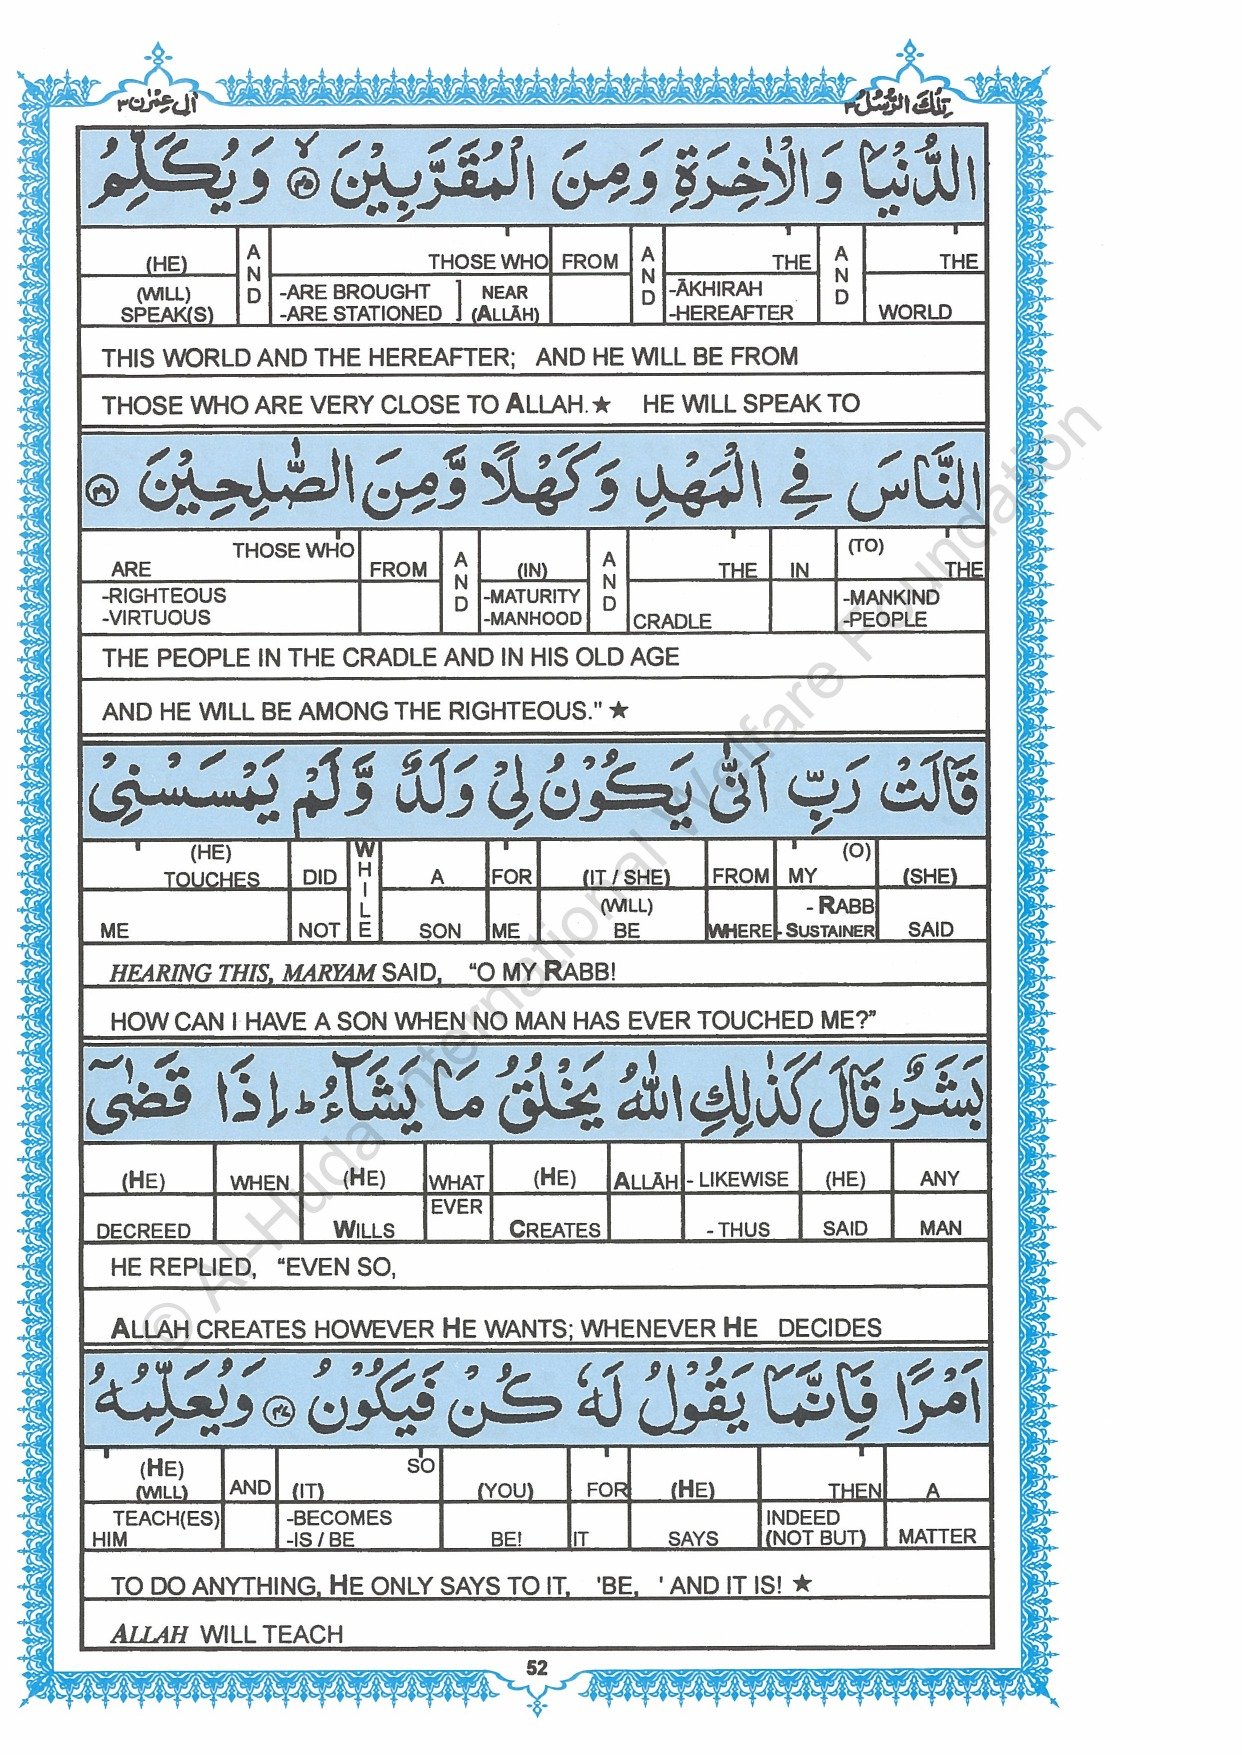 اٰلِ عِمْرٰن ٣ تِلْكَ الرُّسُلُ ٣
الدُّنْيَا وَالْاٰخِرَةِ وَمِنَ الْمُقَرَّبِيْنَ ۙ ٤٥ وَيُكَلِّمُ
(HE) AND THOSE WHO FROM AND THE AND THE
(WILL) SPEAK(S) -ARE BROUGHT -ARE STATIONED ] NEAR (ALLĀH) -ĀKHIRAH -HEREAFTER WORLD
THIS WORLD AND THE HEREAFTER; AND HE WILL BE FROM
THOSE WHO ARE VERY CLOSE TO ALLAH.★ HE WILL SPEAK TO
النَّاسَ فِي الْمَهْدِ وَكَهْلًا وَّمِنَ الصّٰلِحِيْنَ ٤٦
THOSE WHO ARE FROM AND (IN) AND THE IN (TO) THE
-RIGHTEOUS -VIRTUOUS -MATURITY -MANHOOD CRADLE -MANKIND -PEOPLE
THE PEOPLE IN THE CRADLE AND IN HIS OLD AGE
AND HE WILL BE AMONG THE RIGHTEOUS." ★
قَالَتْ رَبِّ اَنّٰى يَكُوْنُ لِيْ وَلَدٌ وَّلَمْ يَمْسَسْنِيْ
(HE) TOUCHES DID WHILE A FOR (IT / SHE) FROM MY (O) (SHE)
ME NOT SON ME (WILL) BE WHERE - RABB - SUSTAINER SAID
HEARING THIS, MARYAM SAID, “O MY RABB!
HOW CAN I HAVE A SON WHEN NO MAN HAS EVER TOUCHED ME?”
بَشَرٌ ؕ قَالَ كَذٰلِكِ اللّٰهُ يَخْلُقُ مَا يَشَآءُ ؕ اِذَا قَضٰٓى
(HE) WHEN (HE) WHAT (HE) ALLĀH - LIKEWISE (HE) ANY
DECREED WILLS EVER CREATES - THUS SAID MAN
HE REPLIED, “EVEN SO,
ALLAH CREATES HOWEVER HE WANTS; WHENEVER HE DECIDES
اَمْرًا فَاِنَّمَا يَقُوْلُ لَهٗ كُنْ فَيَكُوْنُ ٤٧ وَيُعَلِّمُهُ
(HE) (WILL) AND (IT) SO (YOU) FOR (HE) THEN A
TEACH(ES) HIM -BECOMES -IS / BE BE! IT SAYS INDEED (NOT BUT) MATTER
TO DO ANYTHING, HE ONLY SAYS TO IT, 'BE, ' AND IT IS! ★
ALLAH WILL TEACH
52
© Al-Huda International Welfare Foundation